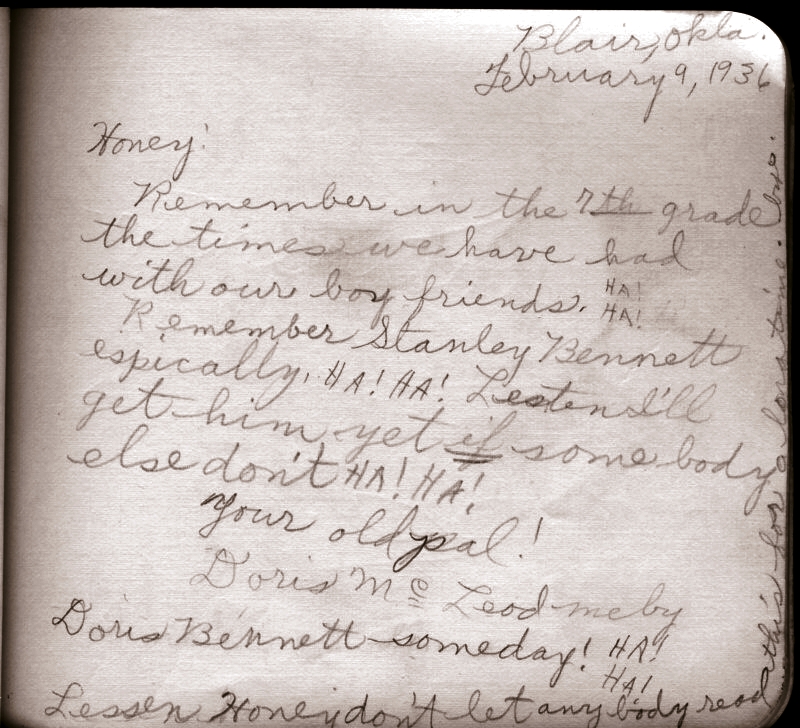 Blair, Okla.
February 9, 1936
Honey!
Remember in the 7th grade
the times we have had
with our boy friends. HA!
HA!
Remember Stanley Bennett
espically, HA! HA! Lesten I'll
get him yet if some body
else don't HA! HA!
Your old pal!
Doris Mc Leod mcby
Doris Bennett someday! HA!
HA!
Lessen Honey don't let any body read
this for a long time.